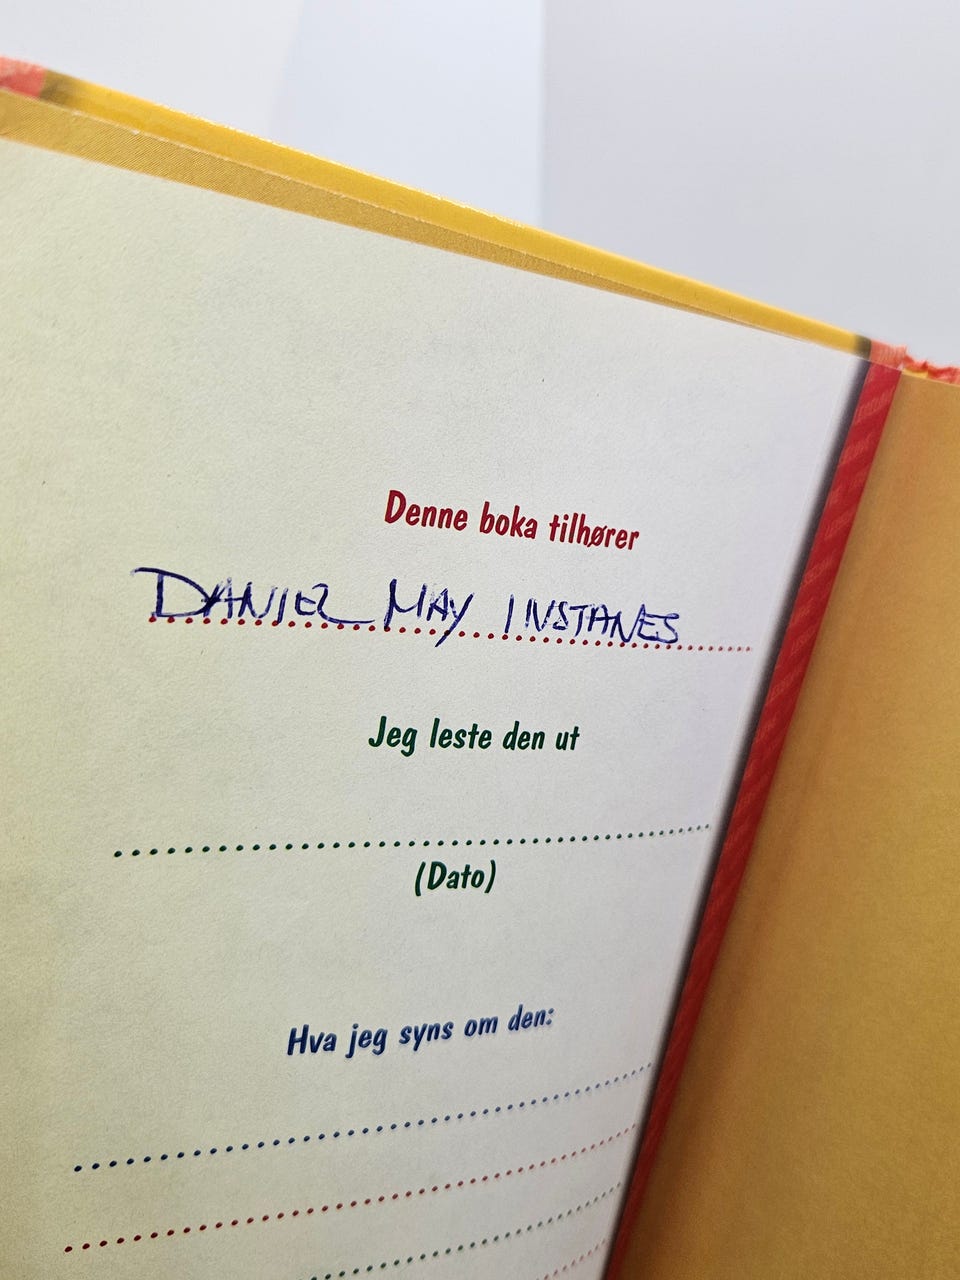 Denne boka tilhører
DANIEL MAY INSTANES
Jeg leste den ut
(Dato)
Hva jeg syns om den: